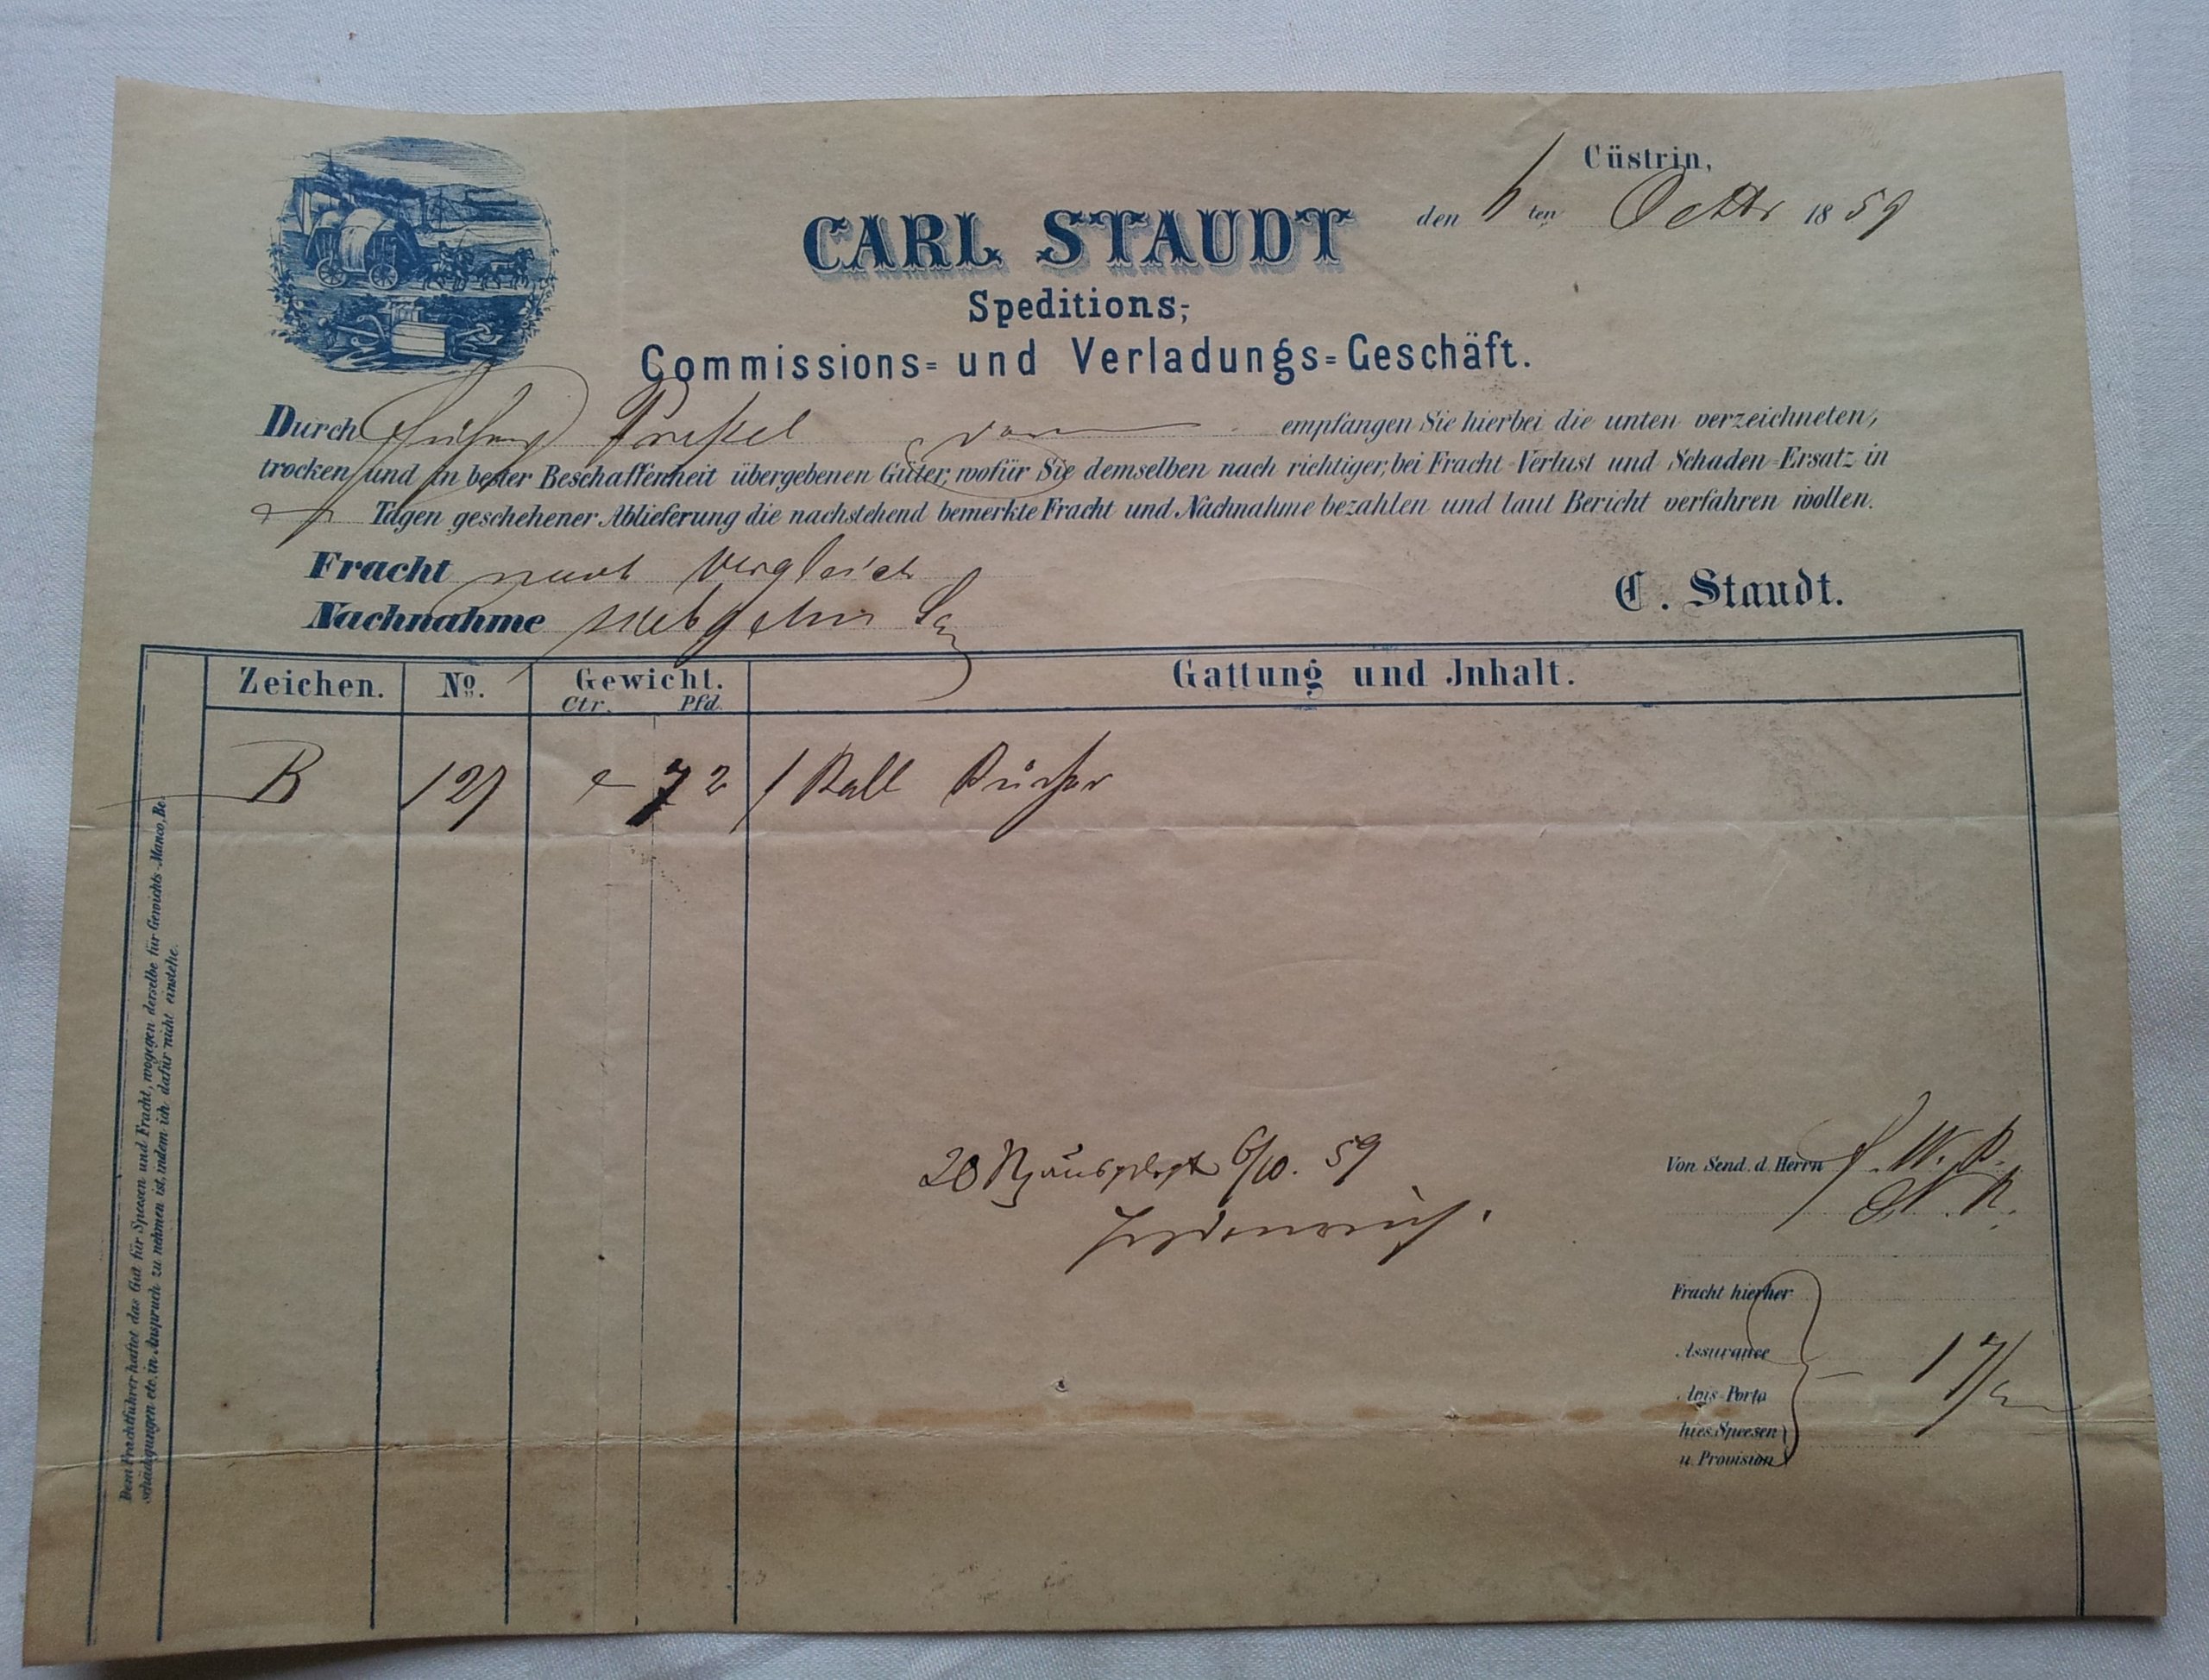 Cüstrin,
den 6 ten Octbr 1859
CARL STAUDT
Speditions-,
Commissions- und Verladungs-Geschäft.
Durch empfangen Sie hierbei die unten verzeichneten,
trocken und in bester Beschaffenheit übergebenen Güter, wofür Sie demselben nach richtiger, bei Fracht-Verlust und Schaden-Ersatz in
Tagen geschehener Ablieferung die nachstehend bemerkte Fracht und Nachnahme bezahlen und laut Bericht verfahren wollen.
Fracht nach Vergleich
Nachnahme siebzehn Sg
C. Staudt.
Zeichen. No. Gewicht. Gattung und Jnhalt.
Ctr. Pfd.
B 127 72 1 Ball Bücher
Dem Frachtführer haftet das Gut für Speesen und Fracht, wogegen derselbe für Gewichts-Manco, Be-
schädigungen etc. in Anspruch zu nehmen ist, indem ich dafür nicht einstehe.
20 ausgelegt 6/10. 59
Von Send. d. Herrn
Fracht hierher
Assurance
Ausl. Porto
hies. Speesen
u. Provision
17/